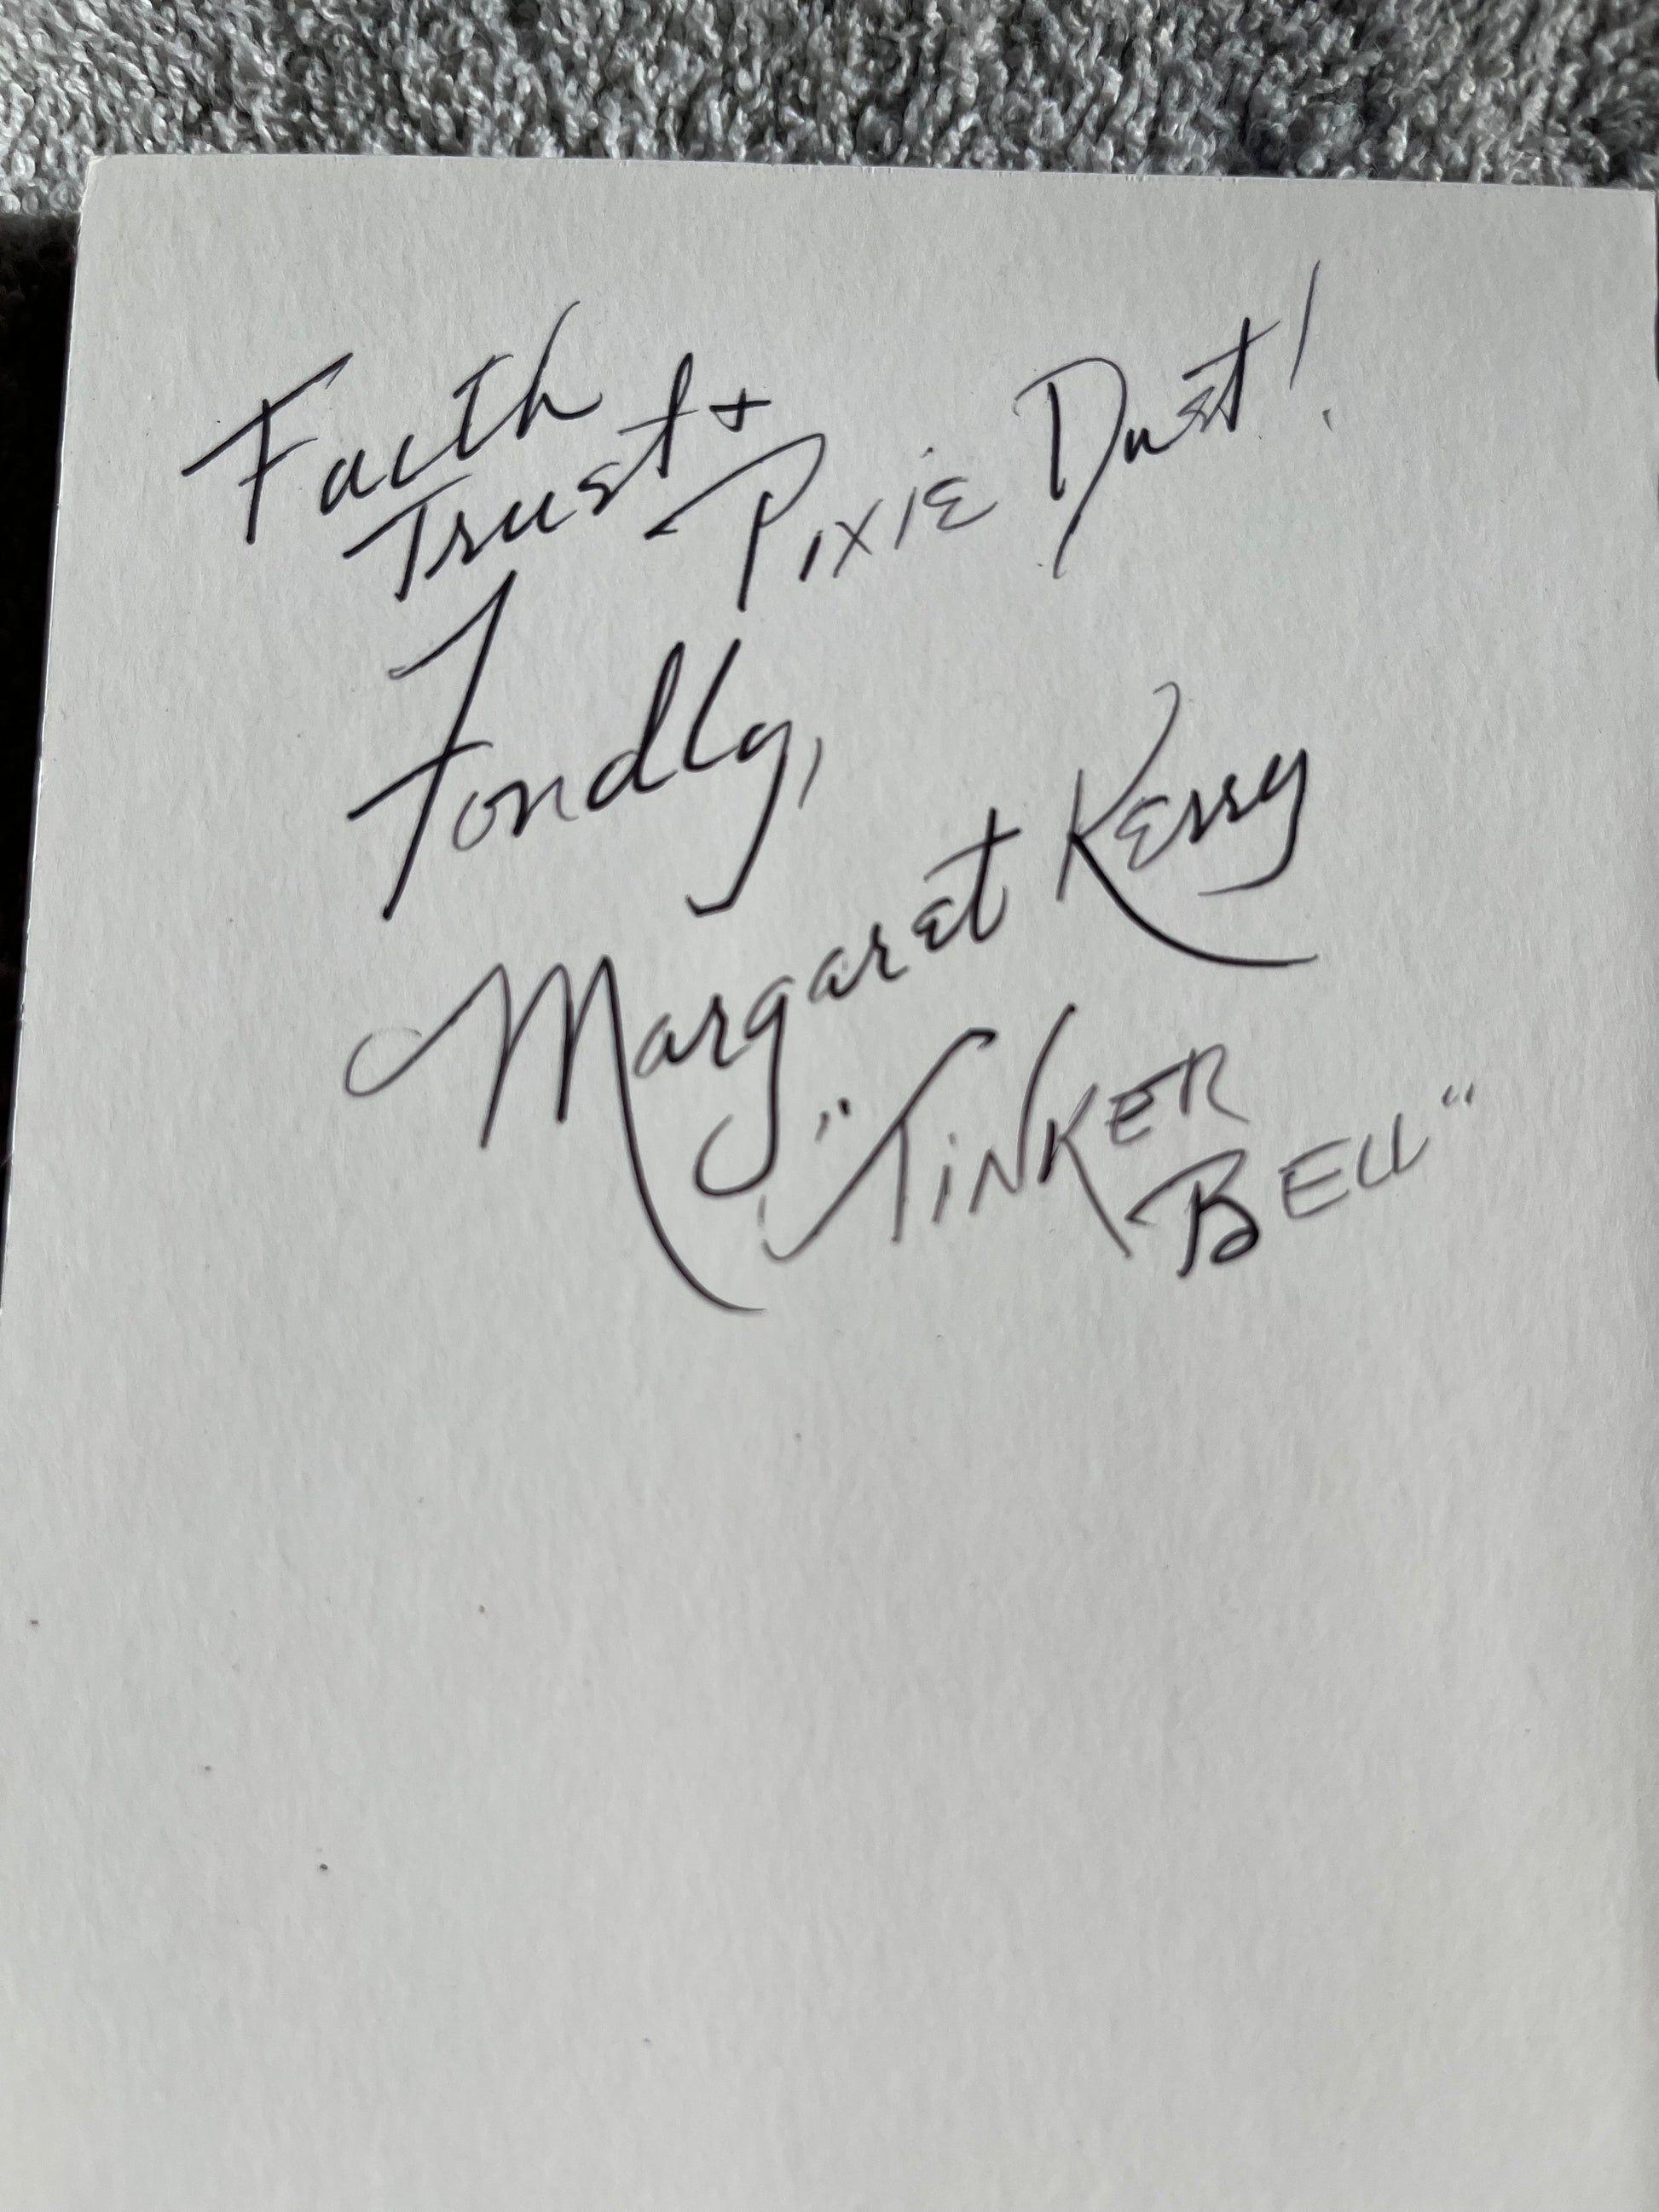 Faith
Trust +
Pixie Dust!
Fondly,
Margaret Kerry
"TiNKER
BELL"